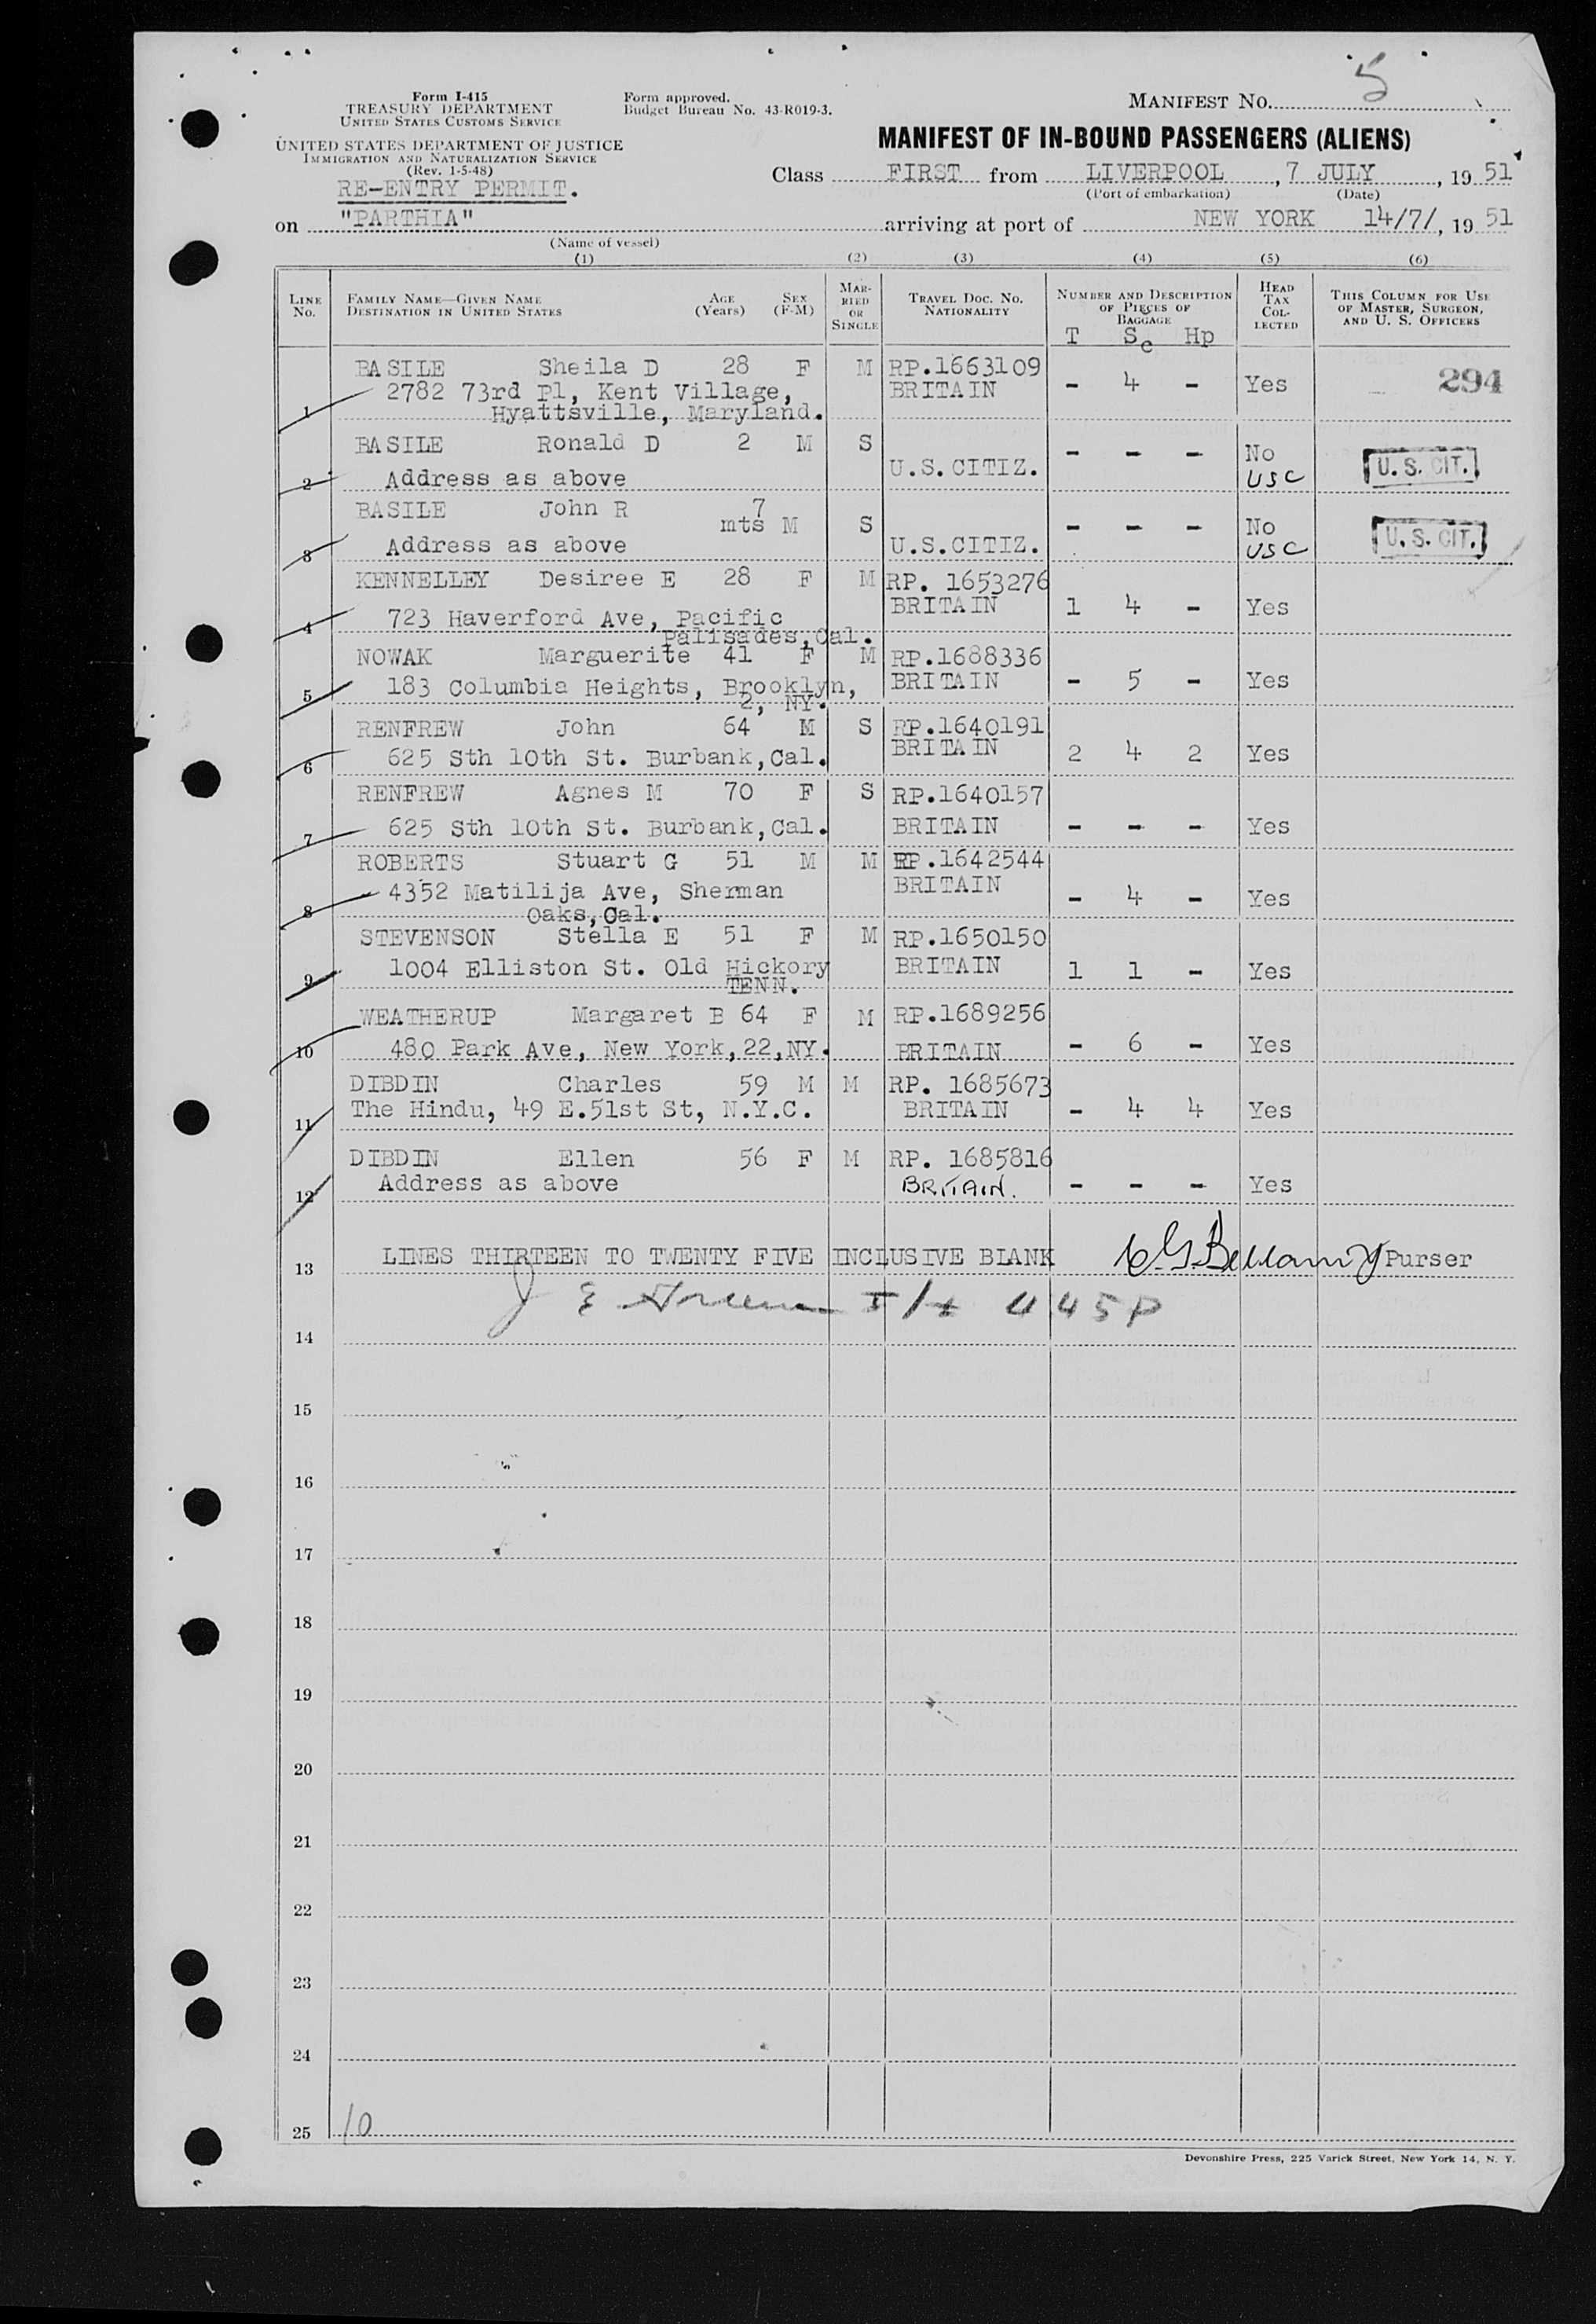 5
Form I-415
TREASURY DEPARTMENT
UNITED STATES CUSTOMS SERVICE
Form approved.
Budget Bureau No. 43-R019-3.
MANIFEST No.
UNITED STATES DEPARTMENT OF JUSTICE
IMMIGRATION AND NATURALIZATION SERVICE
(Rev. 1-5-48)
MANIFEST OF IN-BOUND PASSENGERS (ALIENS)
RE-ENTRY PERMIT.
Class FIRST from LIVERPOOL, 7 JULY, 1951
(Port of embarkation) (Date)
on "PARTHIA" arriving at port of NEW YORK 14/7/, 1951
(Name of vessel)
(1) (2) (3) (4) (5) (6)
LINE No.
FAMILY NAME—GIVEN NAME
DESTINATION IN UNITED STATES
AGE (Years)
SEX (F-M)
MARRIED OR SINGLE
TRAVEL DOC. NO. NATIONALITY
NUMBER AND DESCRIPTION OF PIECES OF BAGGAGE
T Sc Hp
HEAD TAX COLLECTED
THIS COLUMN FOR USE OF MASTER, SURGEON, AND U. S. OFFICERS
BASILE Sheila D 28 F M RP.1663109
1 2782 73rd Pl, Kent Village, BRITAIN - 4 - Yes 294
Hyattsville, Maryland.
BASILE Ronald D 2 M S - - - No
2 Address as above U.S.CITIZ. USC U. S. CIT.
BASILE John R 7 mts M S - - - No
3 Address as above U.S.CITIZ. USC U. S. CIT.
KENNELLEY Desiree E 28 F M RP. 1653276
4 723 Haverford Ave, Pacific BRITAIN 1 4 - Yes
Palisades, Cal.
NOWAK Marguerite 41 F M RP.1688336
5 183 Columbia Heights, Brooklyn, BRITAIN - 5 - Yes
2, NY.
RENFREW John 64 M S RP.1640191
6 625 Sth 10th St. Burbank, Cal. BRITAIN 2 4 2 Yes
RENFREW Agnes M 70 F S RP.1640157
7 625 Sth 10th St. Burbank, Cal. BRITAIN - - - Yes
ROBERTS Stuart G 51 M M RP.1642544
8 4352 Matilija Ave, Sherman BRITAIN - 4 - Yes
Oaks, Cal.
STEVENSON Stella E 51 F M RP.1650150
9 1004 Elliston St. Old Hickory BRITAIN 1 1 - Yes
TENN.
WEATHERUP Margaret B 64 F M RP.1689256
10 480 Park Ave, New York, 22, NY. BRITAIN - 6 - Yes
DIBDIN Charles 59 M M RP. 1685673
11 The Hindu, 49 E.51st St, N.Y.C. BRITAIN - 4 4 Yes
DIBDIN Ellen 56 F M RP. 1685816
12 Address as above BRITAIN. - - - Yes
13 LINES THIRTEEN TO TWENTY FIVE INCLUSIVE BLANK Bellamy Purser
J E 445P
14
15
16
17
18
19
20
21
22
23
24
25 10
Devonshire Press, 225 Varick Street, New York 14, N. Y.